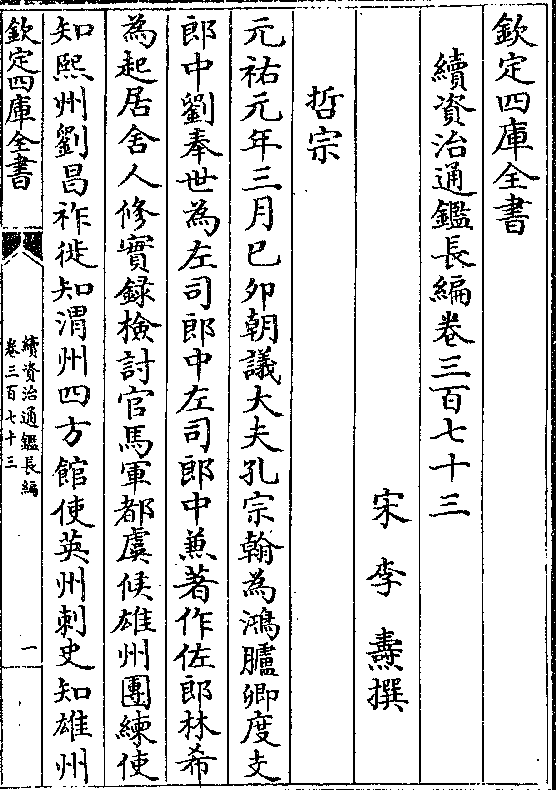 欽定四庫全書
續資治通鑑長編卷三百七十三
宋李燾撰
哲宗
元祐元年三月己卯朝議大夫孔宗翰為鴻臚卿度支
郎中劉奉世為左司郎中左司郎中兼著作佐郎林希
為起居舍人修實録檢討官馬軍都虞候雄州團練使
知熙州劉昌祚徙知渭州四方館使英州刺史知雄州
欽定四庫全書
續資治通鑑長編
卷三百七十三
一